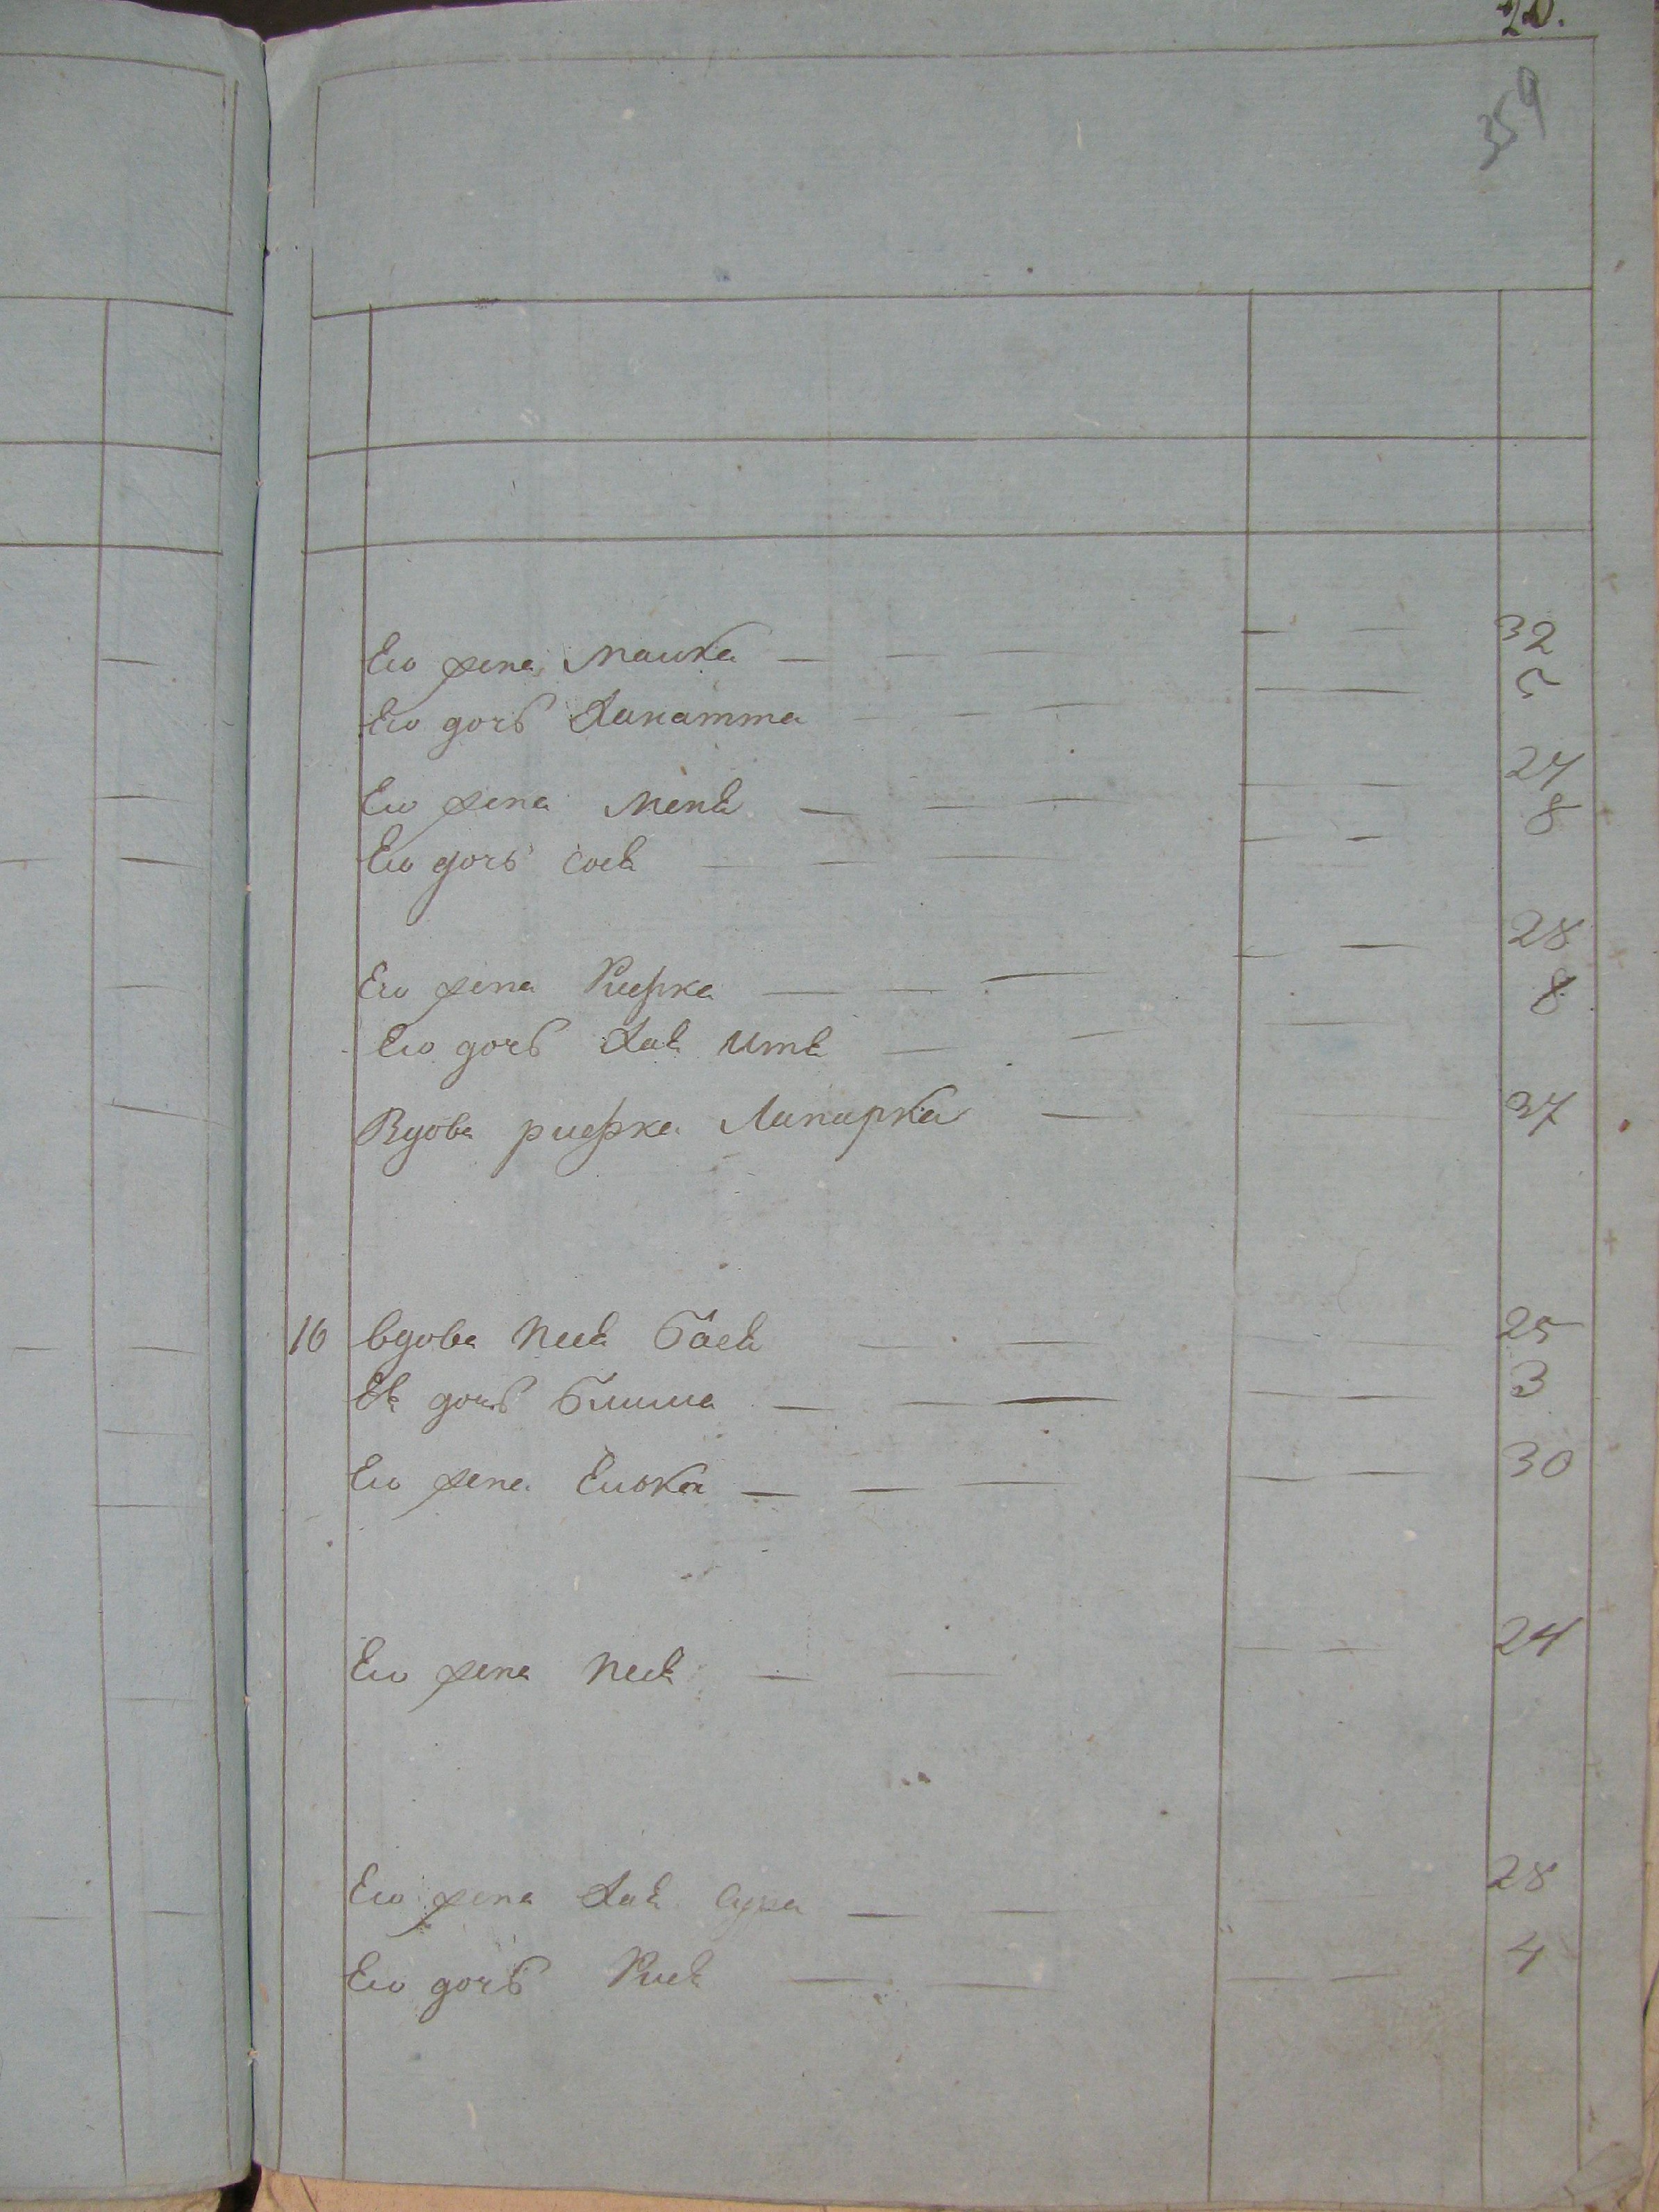 20.
359
Его жена Машка — — — — — 32
Его дочь Ханатта — — — — — 5
Его жена Менѣ — — — — — 24
Его дочь Сосѣ — — — — — 8
Его жена Рифка — — — — — 28
Его дочь Хаѣ Итѣ — — — 8
Вдова рифка Лапирка — 37
16 вдова Песѣ Басѣ — — — — 25
Еѣ дочь Блима — — — — — 3
Его жена Елока — — — — — 30
Его жена Песѣ — — — — 24
Его жена Хаѣ Сура — — — — 28
Его дочь Рисѣ — — — — 4